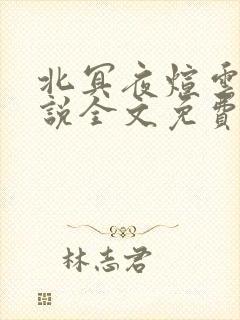 北冥夜煊雲
說全文免費
林志君